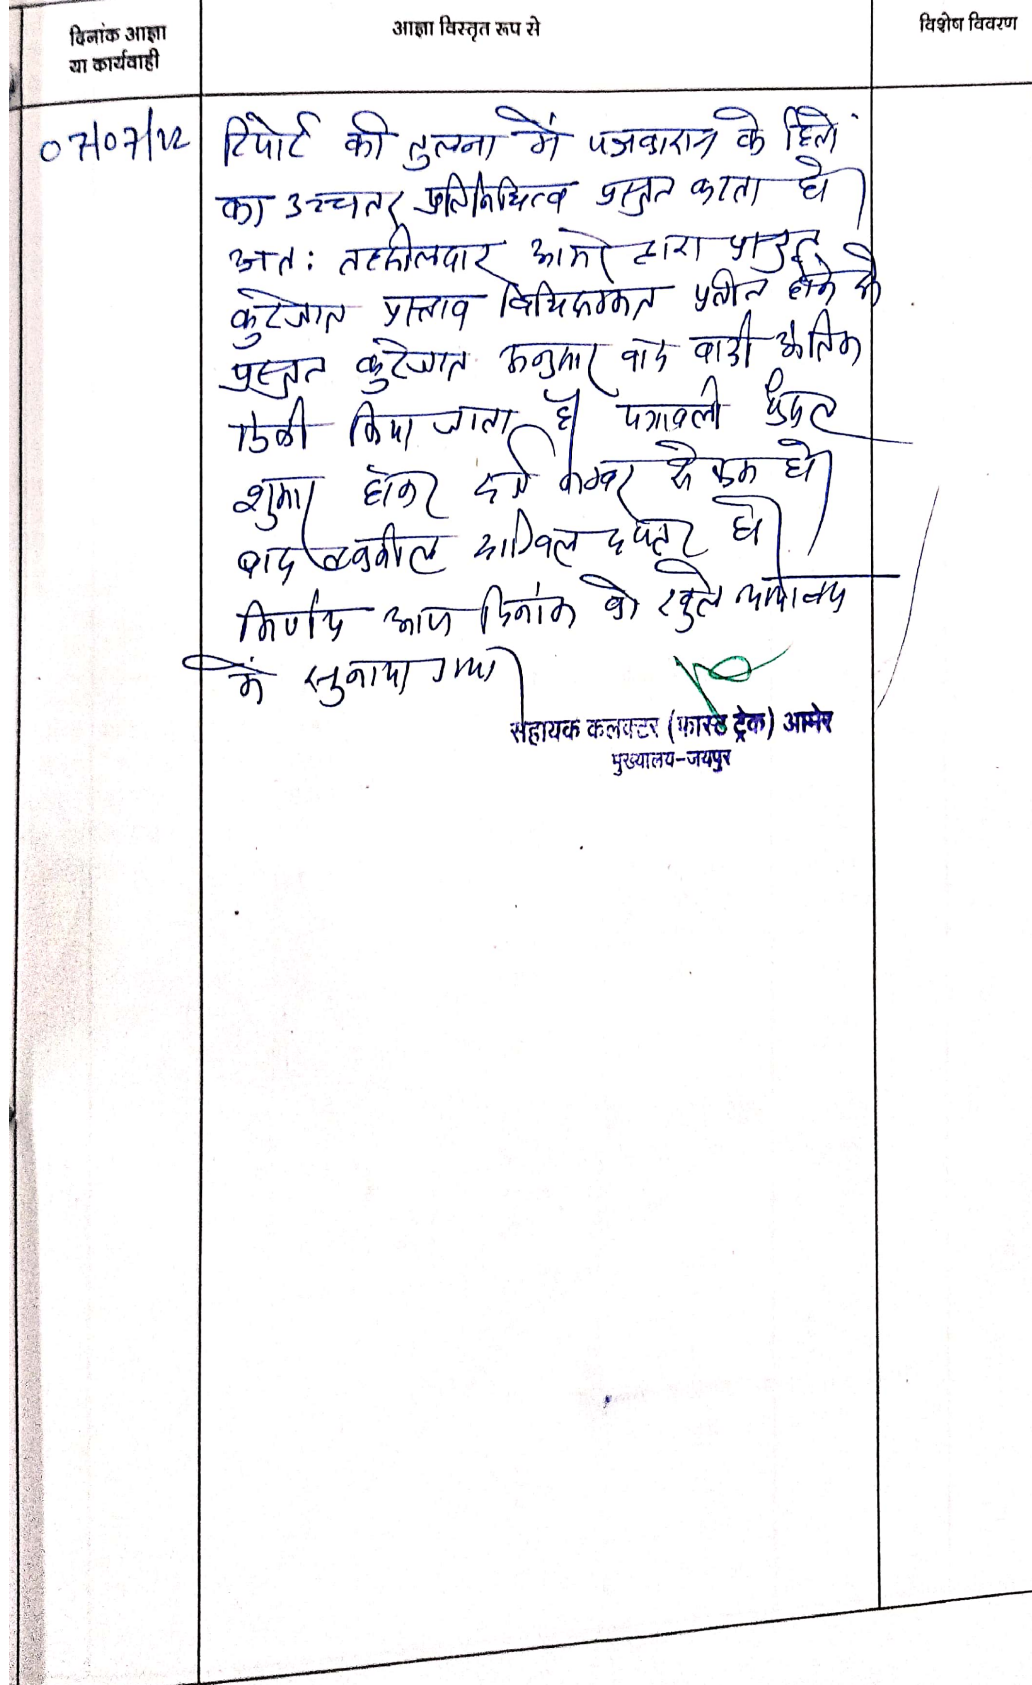 दिनांक आज्ञा
या कार्यवाही
आज्ञा विस्तृत रूप से
विशेष विवरण
07/07/22
रिपोर्ट की तुलना में पक्षकारान के हितों
का उच्चतर प्रतिनिधित्व प्रस्तुत करता है।
अतः तहसीलदार आमेर द्वारा प्रस्तुत
कुर्रेजात प्रस्ताव विधिसम्मत प्रतीत होने से
प्रस्तुत कुर्रेजात अनुसार वाद वादी अंतिम
डिक्री किया जाता है। पत्रावली फैसल
शुमार होकर दर्ज नम्बर से कम हो।
बाद तकमील दाखिल दफ्तर हो।
निर्णय आज दिनांक को खुले न्यायालय
में सुनाया गया।
सहायक कलक्टर (फास्ट ट्रेक) आमेर
मुख्यालय-जयपुर